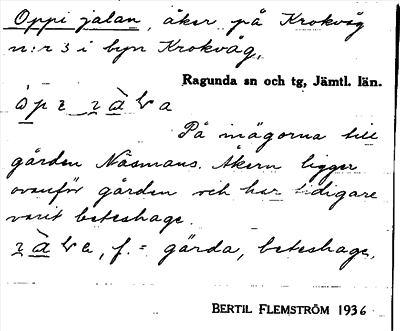 Oppi jalan, åker på Krokvåg
n:r 3 i byn Krokvåg,
Ragunda sn och tg, Jämtl. län.
På mägorna till
gården Näsmans. Åkern ligger
ovanför gården och har tidigare
varit beteshage.
f. = gärda, beteshage.
BERTIL FLEMSTRÖM 1936